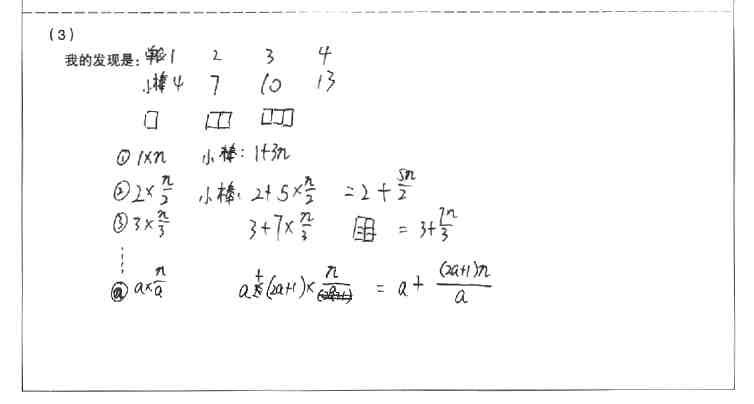 (3)
我的发现是: 1 2 3 4
小棒 4 7 10 13
① 1×n 小棒: 1+3n
② 2×n/2 小棒: 2+5×n/2 =2+5n/2
③ 3×n/3 3+7×n/3 =3+7n/3
a×n/a a+(2a+1)×n/a = a+(2a+1)n/a